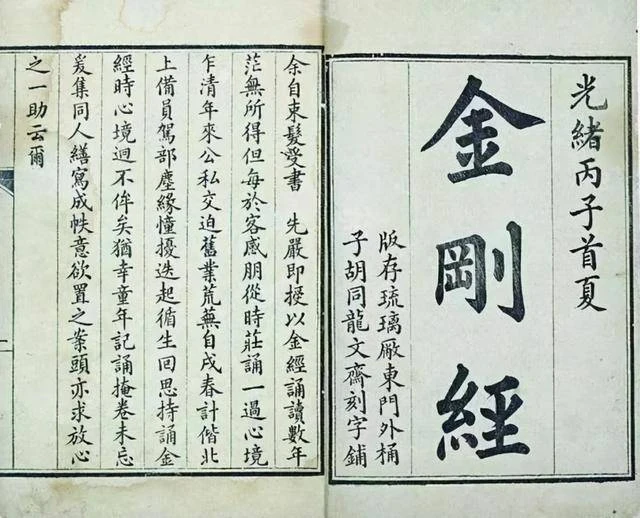 光緒丙子首夏
金剛經
版存琉璃厰東門外桶
子胡同龍文齋刻字鋪
余自束髮受書　先嚴即授以金經誦讀數年
茫無所得但每於客感朋從時莊誦一過心境
乍清年來公私交迫舊業荒蕪自戌春計偕北
上備員駕部塵緣憧擾迭起循生回思持誦金
經時心境迴不侔矣猶幸童年記誦掩卷未忘
爰集同人繕寫成帙意欲置之案頭亦求放心
之一助云爾